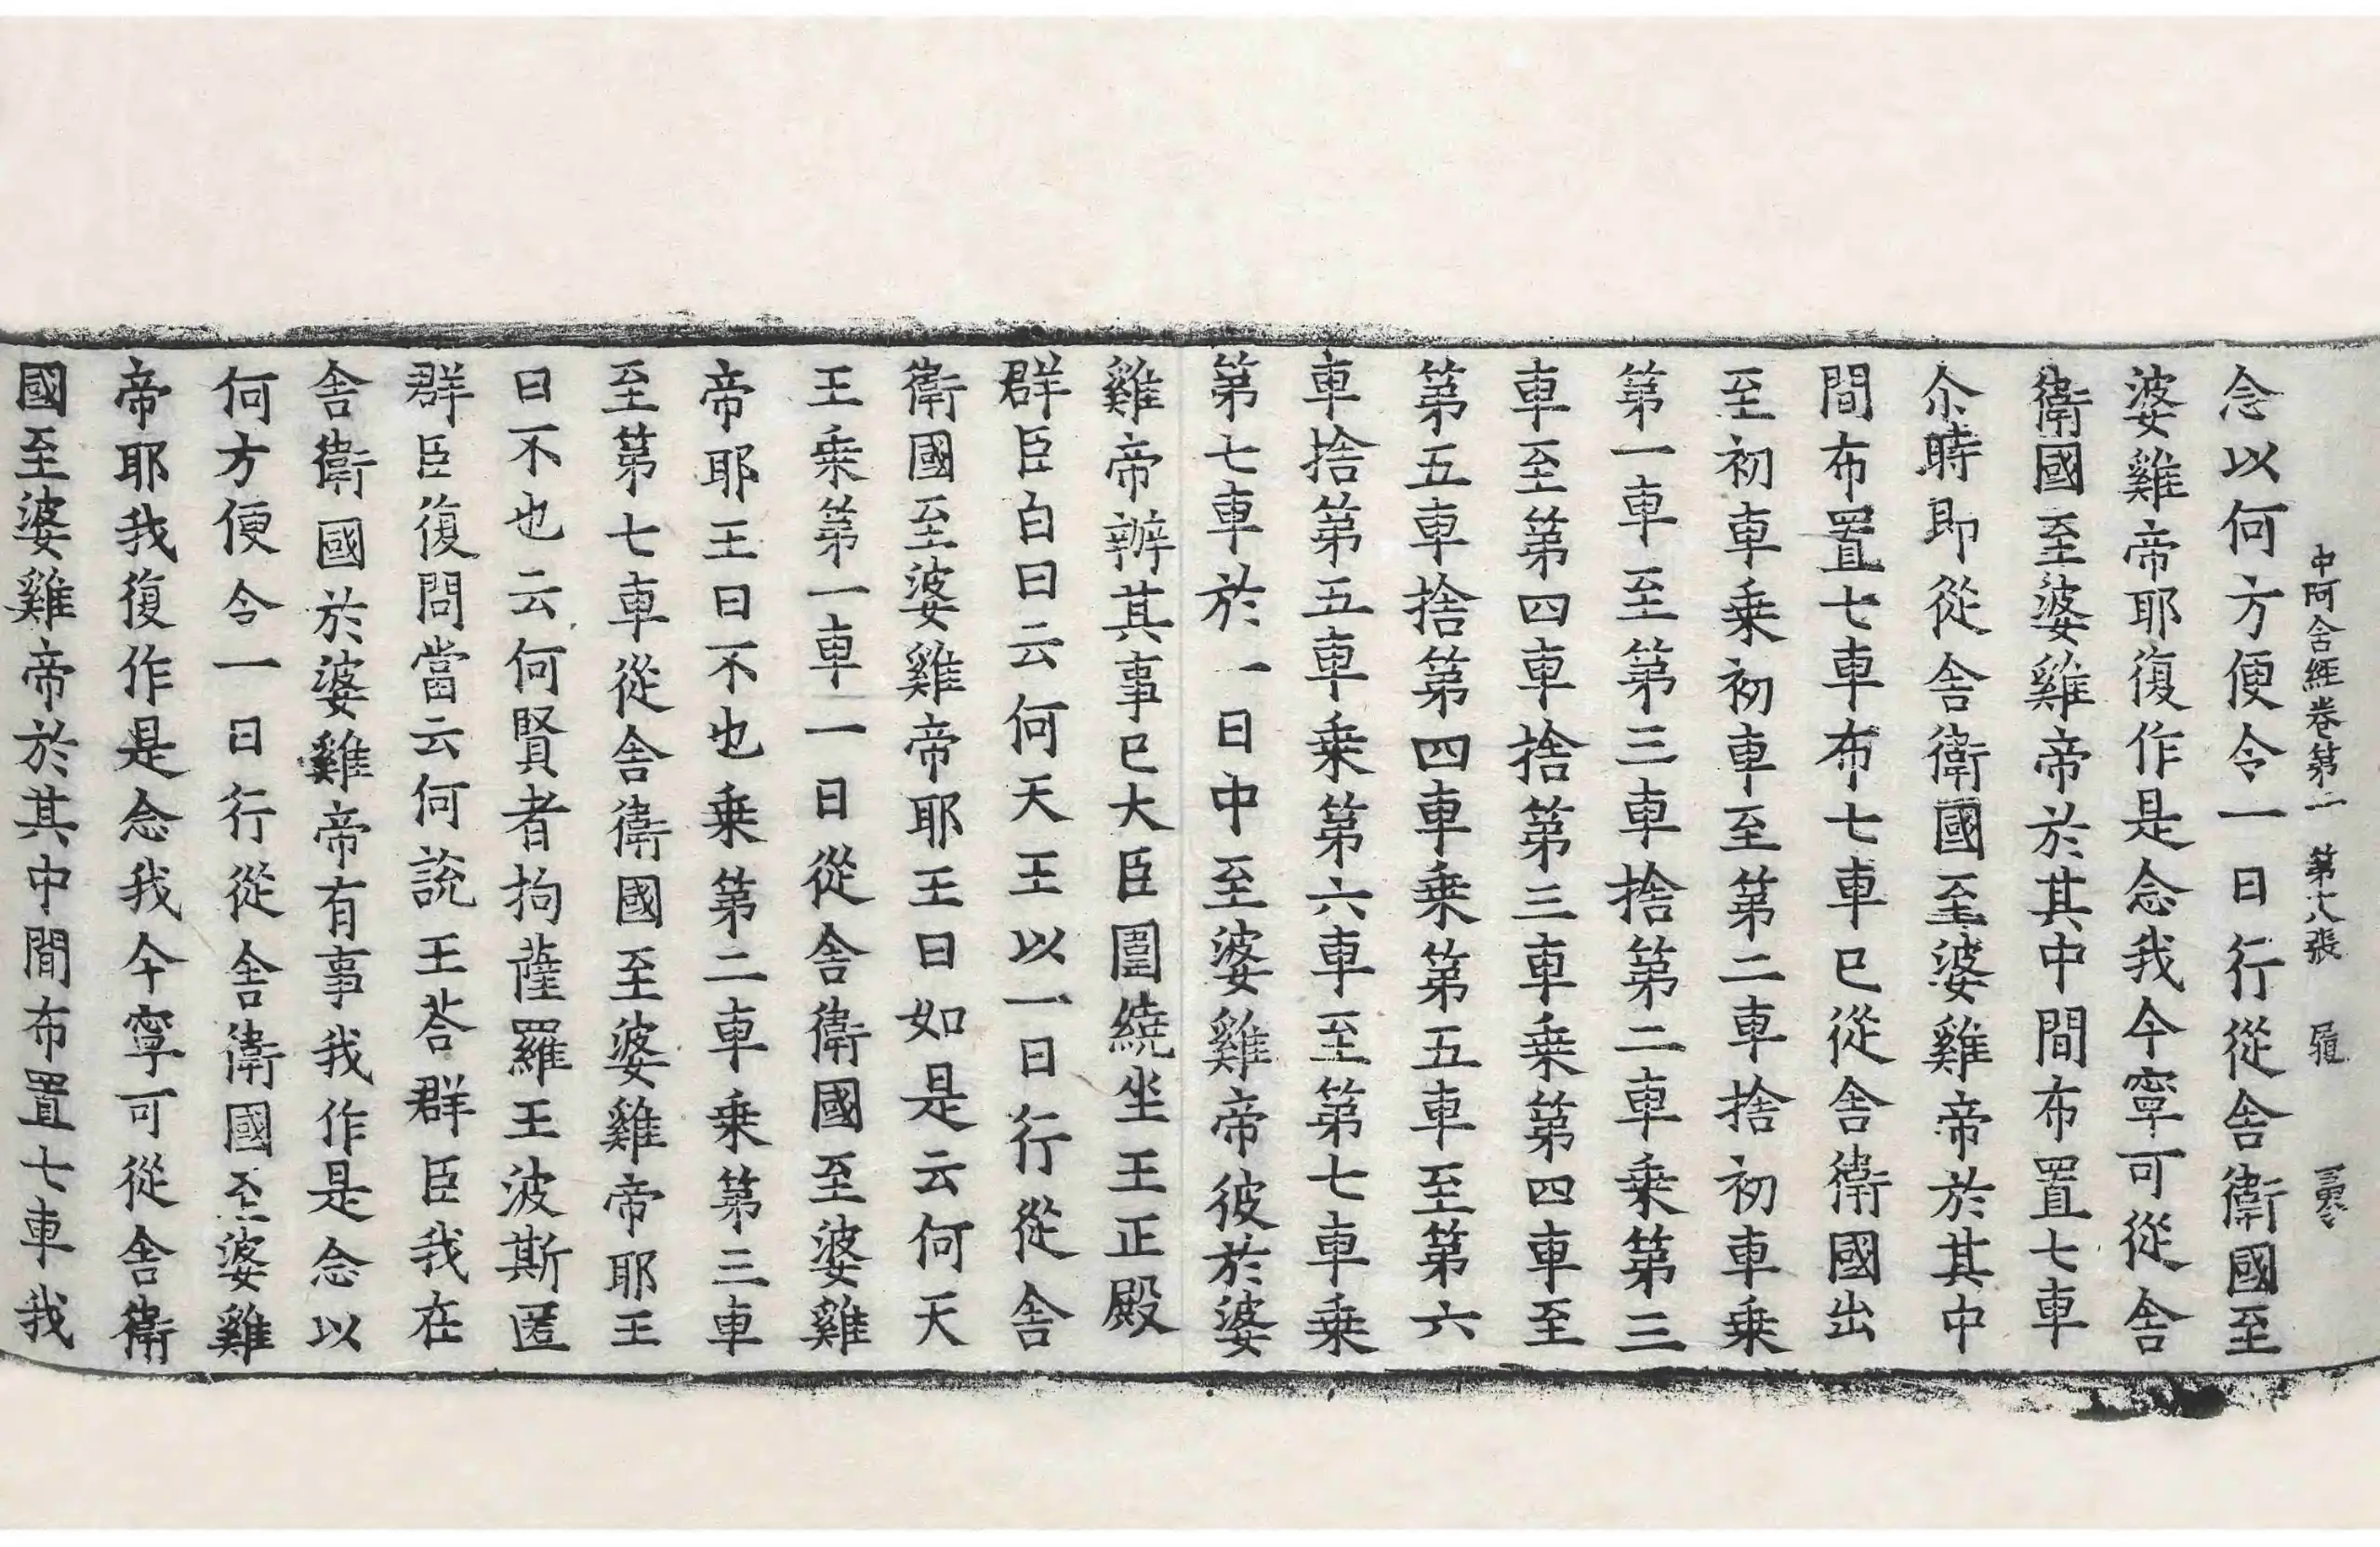 中阿含經卷第二　第十八張　履　㝱
念以何方便令一日行從舍衛國至
婆雞帝耶復作是念我今寧可從舍
衛國至婆雞帝於其中間布置七車
尒時即從舍衛國至婆雞帝於其中
間布置七車布七車已從舍衛國出
至初車乗初車至第二車捨初車乗
第一車至第三車捨第二車乗第三
車至第四車捨第三車乗第四車至
第五車捨第四車乗第五車至第六
車捨第五車乗第六車至第七車乗
第七車於一日中至婆雞帝彼於婆
雞帝辦其事已大臣圍繞坐王正殿
群臣白曰云何天王以一日行從舍
衛國至婆雞帝耶王曰如是云何天
王乗第一車一日從舍衛國至婆雞
帝耶王曰不也乗第二車乗第三車
至第七車從舍衛國至婆雞帝耶王
曰不也云何賢者拘薩羅王波斯匿
群臣復問當云何說王荅群臣我在
舍衛國於婆雞帝有事我作是念以
何方便令一日行從舍衛國至婆雞
帝耶我復作是念我今寧可從舍衛
國至婆雞帝於其中間布置七車我